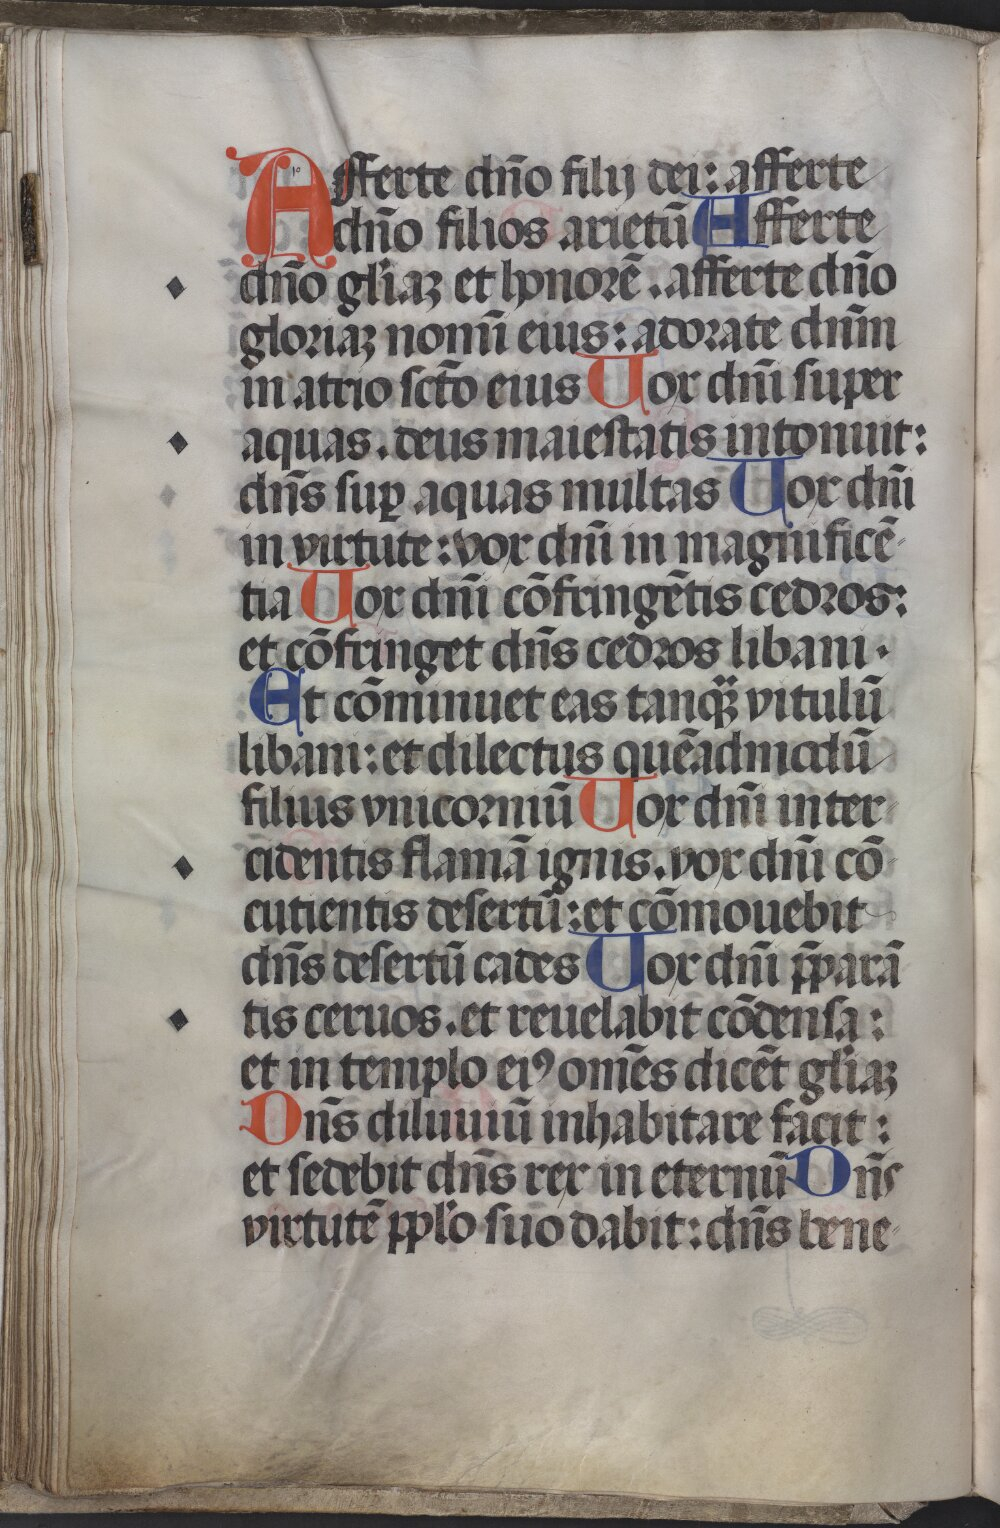 Afferte dño filij dei: afferte
dño filios arietū Afferte
dño gl'iaꝫ et honorē. afferte dño
gloriaꝫ nomī eius: adorate dnm̄
in atrio scto̅ eius Uox dnī super
aquas. deus maiestatis intonuit:
dn̄s suꝑ aquas multas Uox dnī
in virtute: vox dnī in magnificē-
tia Uox dnī cōfringētis cedros:
et cōfringet dn̄s cedros libani.
Et cōminuet eas tanqꝫ vitulū
libani: et dilectus quēadmodū
filius vnicorniū Uox dnī inter-
cidentis flamā ignis. vox dnī cō-
cutientis desertū: et cōmouebit
dn̄s desertū cades Uox dnī p̄parā
tis ceruos. et reuelabit cōdensa:
et in templo eiꝰ omēs dicēt gl'iaꝫ
Dn̄s diluuiū inhabitare facit:
et sedebit dn̄s rex in eternū Dn̄s
virtutē ppl'o suo dabit: dn̄s bene-